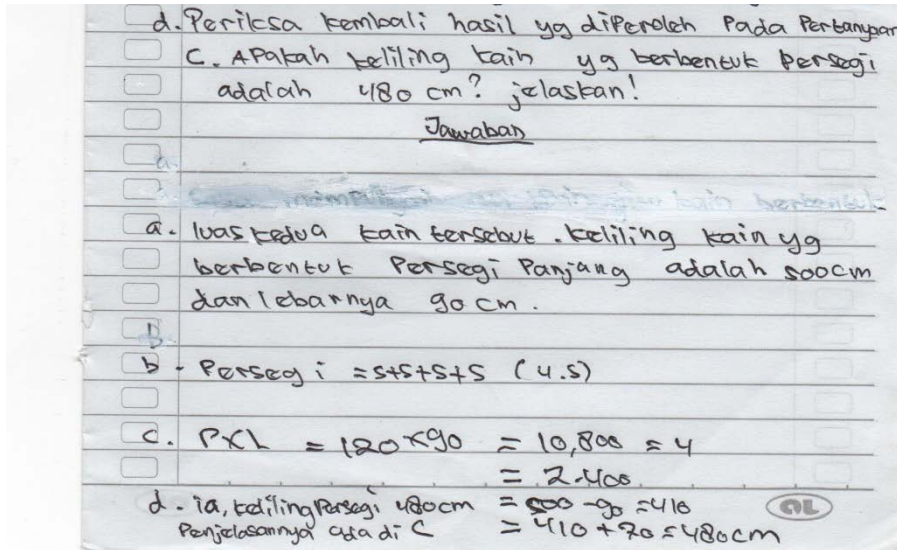 d. Periksa kembali hasil yg diperoleh Pada Pertanyaan
C. Apakah keliling kain yg berbentuk persegi
adalah 480 cm? jelaskan!
Jawaban
a.
a. luas kedua kain tersebut. keliling kain yg
berbentuk Persegi Panjang adalah 500cm
dan lebarnya 90 cm.
b.
b - Persegi = s+s+s+s (4.s)
c. PXL = 120 x 90 = 10,800 = 4
= 2.400
d. ia, keliling Persegi 480cm = 500 - 90 = 410
Penjelasannya ada di C = 410 + 70 = 480cm
OL